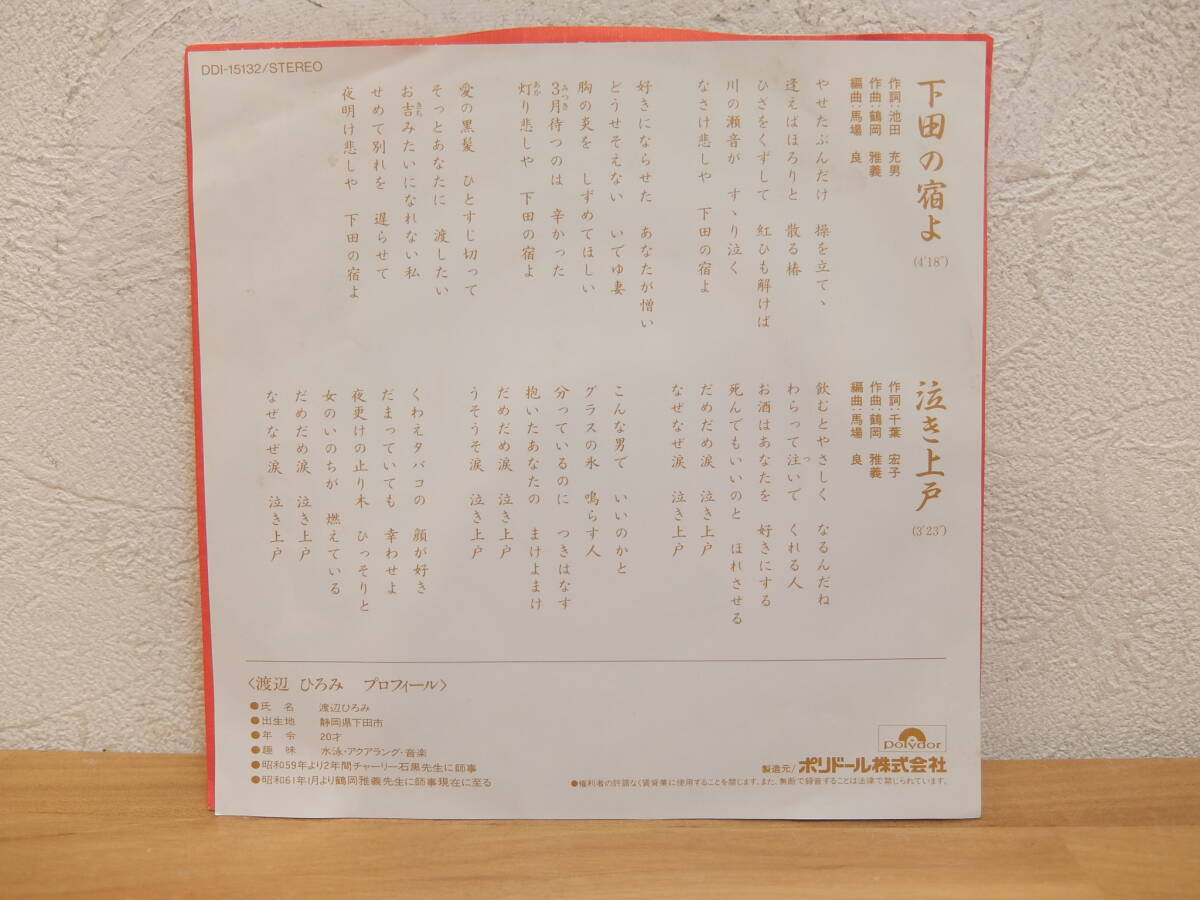 DDI-15132/STEREO
下田の宿よ
(4'18")
作詞：池田　充男
作曲：鶴岡　雅義
編曲：馬場　良
やせたぶんだけ　操を立て丶
逢えばほろりと　散る椿
ひざをくずして　紅ひも解けば
川の瀬音が　すゝり泣く
なさけ悲しや　下田の宿よ
好きにならせた　あなたが憎い
どうせそえない　いでゆ妻
胸の炎を　しずめてほしい
3月待つのは　辛かった
みつき
灯り悲しや　下田の宿よ
あか
愛の黒髪　ひとすじ切って
そっとあなたに　渡したい
お吉みたいになれない私
きち
せめて別れを　遅らせて
夜明け悲しや　下田の宿よ
泣き上戸
(3'23")
作詞：千葉　宏子
作曲：鶴岡　雅義
編曲：馬場　良
飲むとやさしく　なるんだね
わらって注いで　くれる人
つ
お酒はあなたを　好きにする
死んでもいいのと　ほれさせる
だめだめ涙　泣き上戸
なぜなぜ涙　泣き上戸
こんな男で　いいのかと
グラスの氷　鳴らす人
分っているのに　つきはなす
抱いたあなたの　まけよまけ
だめだめ涙　泣き上戸
うそうそ涙　泣き上戸
くわえタバコの　顔が好き
だまっていても　幸わせよ
夜更けの止り木　ひっそりと
女のいのちが　燃えている
だめだめ涙　泣き上戸
なぜなぜ涙　泣き上戸
〈渡辺　ひろみ　プロフィール〉
●氏　名　渡辺ひろみ
●出生地　静岡県下田市
●年　令　20才
●趣　味　水泳・アクアラング・音楽
●昭和59年より2年間チャーリー石黒先生に師事
●昭和61年1月より鶴岡雅義先生に師事現在に至る
polydor
製造元/ポリドール株式会社
●権利者の許諾なく賃貸業に使用することを禁じます。また、無断で録音することは法律で禁じられています。